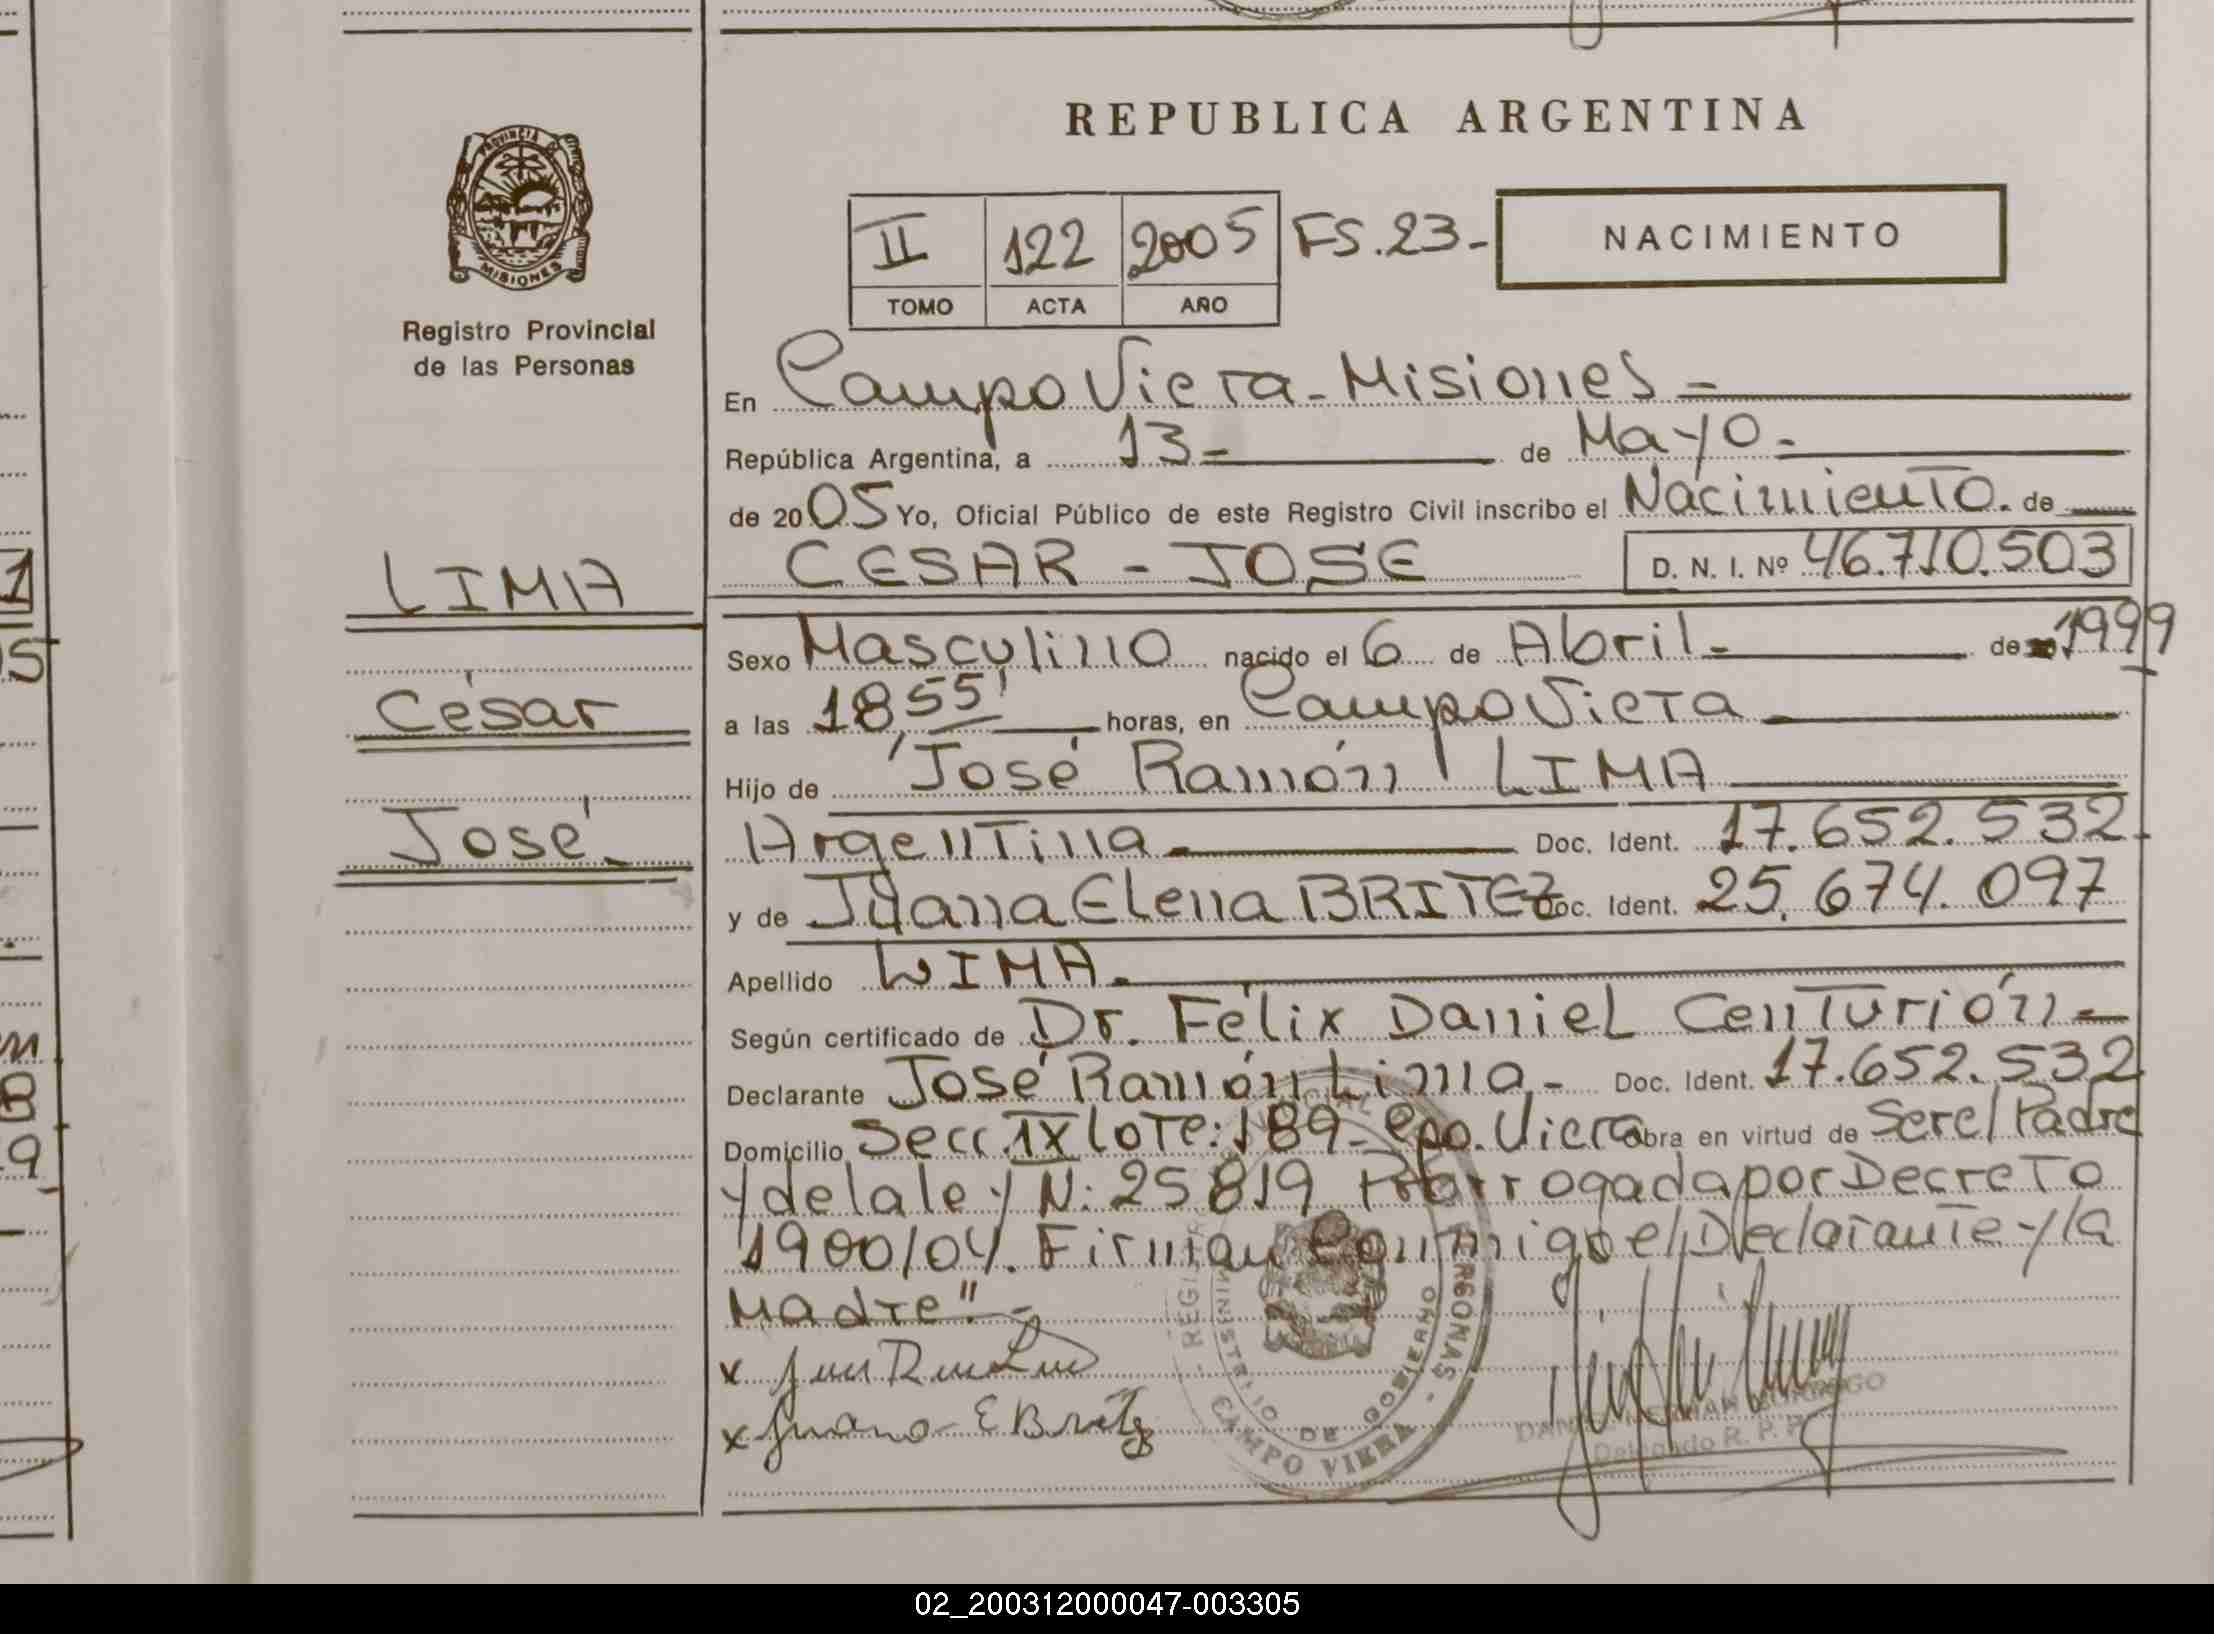 REPUBLICA ARGENTINA
PROVINCIA DE
MISIONES
Registro Provincial
de las Personas
II 122 2005 FS.23-
TOMO ACTA AÑO
NACIMIENTO
En Campo Viera-Misiones-
República Argentina, a 13- de Mayo-
de 2005 Yo, Oficial Público de este Registro Civil inscribo el Nacimiento. de
CESAR - JOSE D. N. I. Nº 46.710.503
LIMA
César
José-
Sexo Masculino nacido el 6 de Abril- de 1999
a las 18,55' horas, en Campo Viera
Hijo de "José Ramón LIMA
Argentina- Doc. Ident. 17.652.532-
y de Juana Elena BRITEZ Doc. Ident. 25.674.097
Apellido LIMA-
Según certificado de Dr. Félix Daniel Centurión-
Declarante José Ramón Lima- Doc. Ident. 17.652.532
Domicilio Secc.IX lote:189-Cpo.Viera obra en virtud de Ser el Padre
y de la ley N: 25819 Prorrogada por Decreto
1900/04. Firman Conmigo el Declarante y la
Madre"-
x
x Juana E Britez
MINISTERIO DE GOBIERNO
CAMPO VIERA
Delegado R. P. P.
1
5
m
B
9
02_200312000047-003305